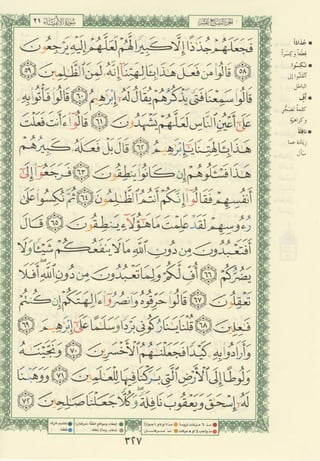 الجزء السابع عشر
سورة الأنبياء ٢١
فَجَعَلَهُمْ جُذَٰذًا إِلَّا كَبِيرًا لَّهُمْ لَعَلَّهُمْ إِلَيْهِ يَرْجِعُونَ
٥٨ قَالُوا۟ مَن فَعَلَ هَٰذَا بِـَٔالِهَتِنَآ إِنَّهُۥ لَمِنَ ٱلظَّٰلِمِينَ ٥٩
قَالُوا۟ سَمِعْنَا فَتًى يَذْكُرُهُمْ يُقَالُ لَهُۥٓ إِبْرَٰهِيمُ ٦٠ قَالُوا۟ فَأْتُوا۟ بِهِۦ
عَلَىٰٓ أَعْيُنِ ٱلنَّاسِ لَعَلَّهُمْ يَشْهَدُونَ ٦١ قَالُوٓا۟ ءَأَنتَ فَعَلْتَ
هَٰذَا بِـَٔالِهَتِنَا يَٰٓإِبْرَٰهِيمُ ٦٢ قَالَ بَلْ فَعَلَهُۥ كَبِيرُهُمْ
هَٰذَا فَسْـَٔلُوهُمْ إِن كَانُوا۟ يَنطِقُونَ ٦٣ فَرَجَعُوٓا۟ إِلَىٰٓ
أَنفُسِهِمْ فَقَالُوٓا۟ إِنَّكُمْ أَنتُمُ ٱلظَّٰلِمُونَ ٦٤ ثُمَّ نُكِسُوا۟ عَلَىٰ
رُءُوسِهِمْ لَقَدْ عَلِمْتَ مَا هَٰٓؤُلَآءِ يَنطِقُونَ ٦٥ قَالَ
أَفَتَعْبُدُونَ مِن دُونِ ٱللَّهِ مَا لَا يَنفَعُكُمْ شَيْـًٔا وَلَا
يَضُرُّكُمْ ٦٦ أُفٍّ لَّكُمْ وَلِمَا تَعْبُدُونَ مِن دُونِ ٱللَّهِ أَفَلَا
تَعْقِلُونَ ٦٧ قَالُوا۟ حَرِّقُوهُ وَٱنصُرُوٓا۟ ءَالِهَتَكُمْ إِن كُنتُمْ
فَٰعِلِينَ ٦٨ قُلْنَا يَٰنَارُ كُونِى بَرْدًا وَسَلَٰمًا عَلَىٰٓ إِبْرَٰهِيمَ ٦٩
وَأَرَادُوا۟ بِهِۦ كَيْدًا فَجَعَلْنَٰهُمُ ٱلْأَخْسَرِينَ ٧٠ وَنَجَّيْنَٰهُ
وَلُوطًا إِلَى ٱلْأَرْضِ ٱلَّتِى بَٰرَكْنَا فِيهَا لِلْعَٰلَمِينَ ٧١ وَوَهَبْنَا
لَهُۥٓ إِسْحَٰقَ وَيَعْقُوبَ نَافِلَةً وَكُلًّا جَعَلْنَا صَٰلِحِينَ ٧٢
جُذَاذًا
قطعًا وكسرًا
نُكِسُوا
انقلبوا إلى
الباطل
أُفٍّ
كلمة تضجّر
وكراهية
نافلة
زيادة عما
سأل
٣٢٧